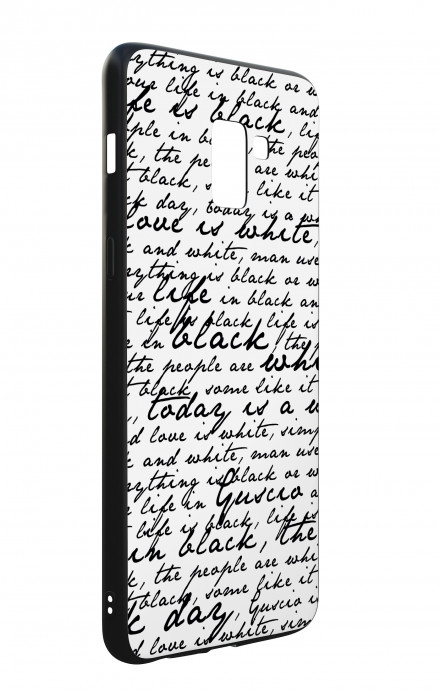 ything is black or w
our life in black and
fe is black, lif
ple in bl the peo
k, the pe are whi
t black, s like it
k day, today is a wh
love is white,
k and white, man use
rything is black or w
ur life in black an
t life is black, life is
e in black, the p
the people are whi
t black, some like it
, today is a w
d love is white, simp
k and white, man use
rything is black or w
r life in Guscio a
t life is black, life is
in black, the
k, the people are whi
t black, some like it
k day, Guscio i
d love is white, sim